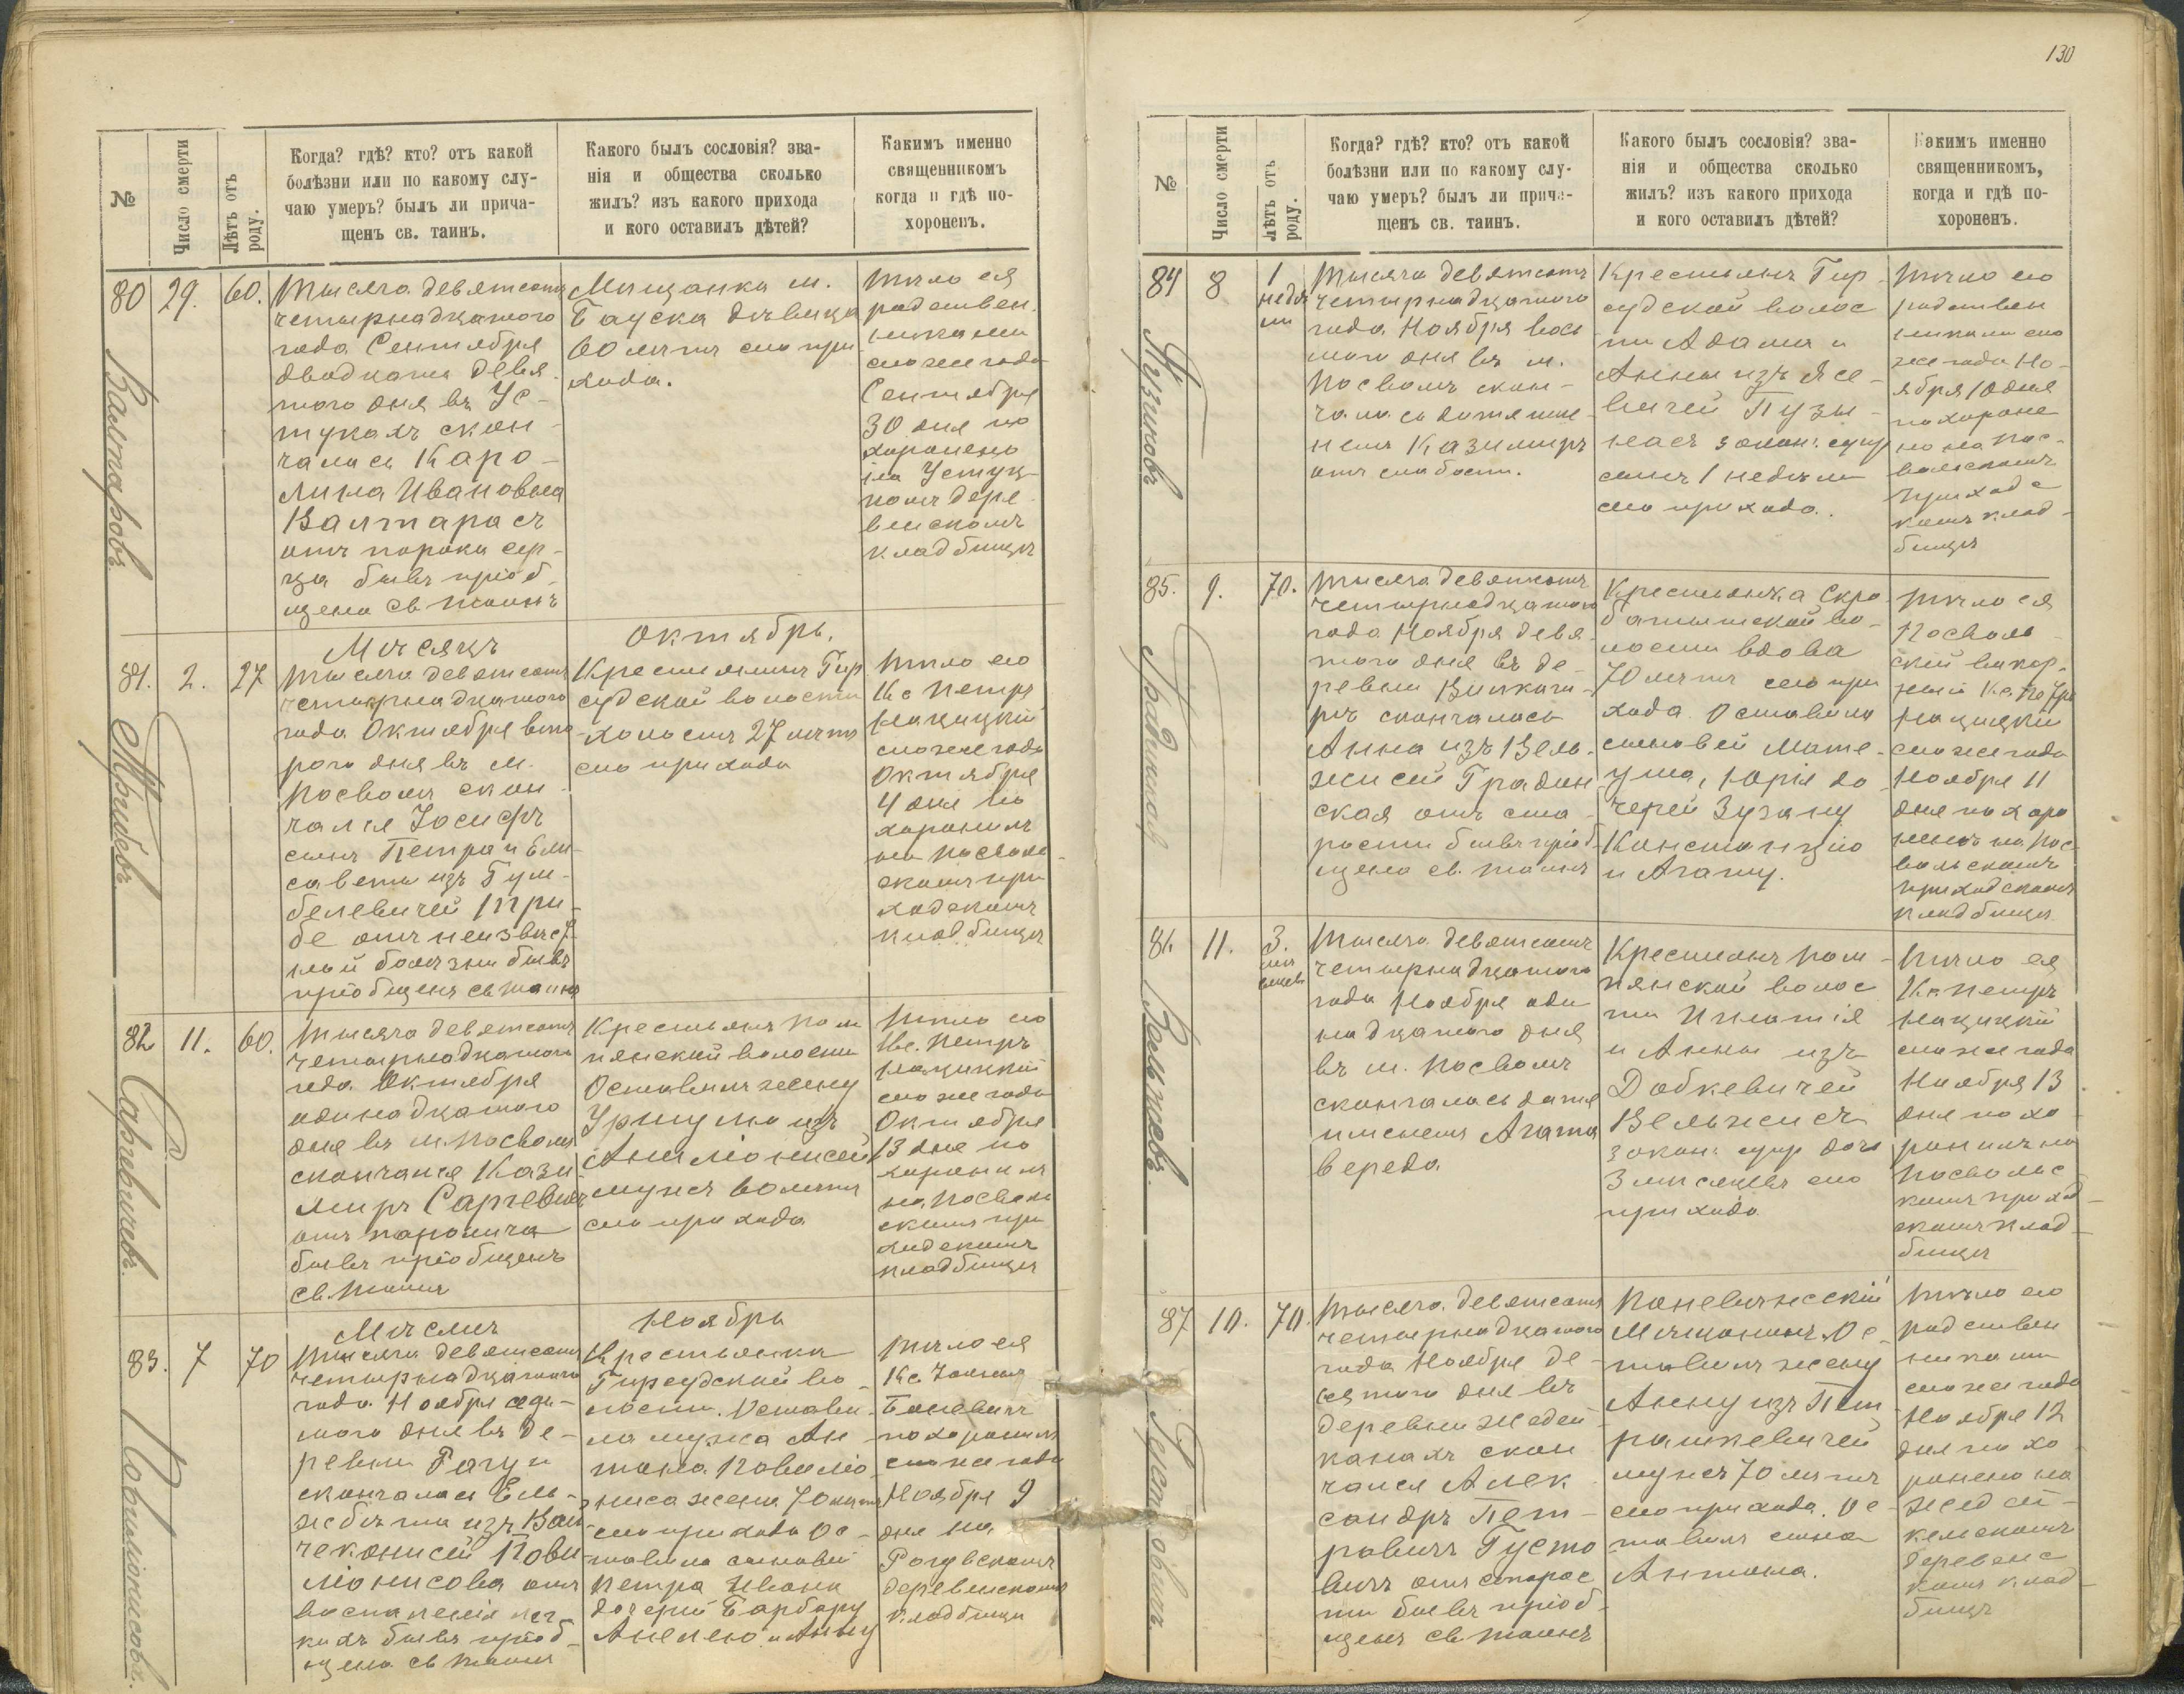 130
№
Число смерти
Лѣтъ отъ
роду.
Когда? гдѣ? кто? отъ какой
болѣзни или по какому слу-
чаю умеръ? былъ ли прича-
щенъ св. таинъ.
Какого былъ сословія? зва-
нія и общества сколько
жилъ? изъ какого прихода
и кого оставилъ дѣтей?
Какимъ именно
священникомъ
когда и гдѣ по-
хороненъ.
80
Валтаровъ
29.
60.
Тысяча девятсотъ
четырнадцатого
года Сентября
двадцать девя-
того дня въ Ус-
тукахъ скон-
чалась Каро-
лина Ивановна
Валтарасъ
отъ порока сер-
ца бывъ пріоб-
щена св. таинъ
Мѣщанка м.
Бауска дѣвица
60 лѣтъ сего при
хода.
Тѣло ея
родствен
никами
сего же года
Сентября
30 дня по
хоронено
на Устук-
комъ дере
венскомъ
кладбищѣ
Мѣсяцъ
Октябрь.
81.
Трибевъ
2.
27
Тысяча девятсотъ
четырнадцатого
года Октября вто
рого дня въ м.
Посволъ скон-
чался Іосифъ
сынъ Петра и Ели-
саветы изъ Гум-
белевичей Три-
бе отъ неизвѣст
ной болѣзни бывъ
пріобщенъ св. таинъ
Крестьянинъ Гир
судской волости
холостъ 27 лѣтъ
сего прихода
Тѣло его
Кс Петръ
Нацицкій
сего же года
Октября
4 дня по
хоронилъ
на Посволь-
скомъ при
ходскомъ
кладбищѣ
82
Саргевичевъ.
11.
60.
Тысяча девятсотъ
четырнадцатого
года Октября
одинадцатого
дня въ м. Посволъ
скончался Кази
миръ Саргевичъ
отъ паралича
бывъ пріобщенъ
св. таинъ
Крестьянъ Пом
пянской волости
Оставилъ жену
Уршулю изъ
Анцлонисей
мужъ 60 лѣтъ
сего прихода
Тѣло его
Кс. Петръ
Нацицкій
сего же года
Октября
13 дня по
хоронилъ
на Посволь
скомъ при
ходскомъ
кладбищѣ
Мѣсяцъ
Ноябрь
83.
Повиліонисовъ.
7
70
Тысяча девятсотъ
четырнадцатого
года Ноября седь-
мого дня въ де-
ревни Рагуи
скончалась Ель-
жбѣта изъ Вай
чеконисей Пови
ліонисова отъ
воспаленія лег-
кихъ бывъ пріоб-
щена св. таинъ
Крестьянка
Гирсудской во-
лости. Остави-
ла мужа Ан
тона Повиліо
ниса жена 70 лѣтъ
сего прихода Ос-
тавила сыновей
Петра Ивана
дочерей Барбару
Анелею и Анну
Тѣло ея
Кс Іоаннъ
Баневичъ
похоронилъ
сего же года
Ноября 9
дня на
Рагувскомъ
деревенскомъ
кладбищѣ
№
Число смерти
Лѣтъ отъ
роду.
Когда? гдѣ? кто? отъ какой
болѣзни или по какому слу-
чаю умеръ? былъ ли прича-
щенъ св. таинъ.
Какого былъ сословія? зва-
нія и общества сколько
жилъ? изъ какого прихода
и кого оставилъ дѣтей?
Какимъ именно
священникомъ,
когда и гдѣ по-
хороненъ.
84
Пузиновъ
8
1
недѣ
ли
Тысяча девятсотъ
четырнадцатого
года Ноября вось
мого дня въ м.
Посволъ скон-
чалось дитя име
немъ Казимиръ
отъ слабости.
Крестьянъ Гир-
судской волос
ти Адама и
Анны изъ Ясе-
вичей Пузы-
насъ закон. супр
сынъ 1 недѣли
сего прихода.
Тѣло его
родствен
никами сего
же года Но-
ября 10 дня
похороне
но на Пос-
вольскомъ
приходс
комъ клад-
бищѣ
85.
Градинсковъ
9.
70.
Тысяча девятсотъ
четырнадцатого
года Ноября девя
того дня въ де-
ревни Вилкаги-
рѣ скончалась
Анна изъ Вель-
жисей Градин
ская отъ ста-
рости бывъ пріоб-
щена св. таинъ
Крестьянка Скро
батышской во-
лости вдова
70 лѣтъ сего при
хода. Оставила
сыновей Мате-
уша, Юрія до-
черей Зузану
Констанцію
и Агату.
Тѣло ея
Посволь-
скій викар-
ный Кс. Петръ
Нацицкій
сего же года
Ноября 11
дня похоро
нилъ на Пос
вольскомъ
приходскомъ
кладбищѣ
86.
Вельжевъ.
11.
3.
мѣ
сяцевъ
Тысяча девятсотъ
четырнадцатого
года Ноября оди
надцатого дня
въ м. Посволъ
скончалась дитя
именемъ Агата
вереда
Крестьянъ Пом-
пянской волос
ти Игнатія
и Анны изъ
Добкевичей
Вельжисъ
закон. супр. дочь
3 мѣсяцевъ сего
прихода
Тѣло ея
Кс. Петръ
Нацицкій
сего же года
Ноября 13
дня похо
ронилъ на
Посвольс
комъ приход-
скомъ клад-
бищѣ
87
Густовичъ
10.
70.
Тысяча девятсотъ
четырнадцатого
года Ноября де-
сятого дня въ
деревни Жадей
канахъ скон
чался Алек
сандръ Пет-
ровичъ Густо
вичъ отъ старос
ти бывъ пріоб-
щенъ св. таинъ
Поневѣжескій
Мѣщанинъ. Ос-
тавилъ жену
Анну изъ Пет
рашкевичей
мужъ 70 лѣтъ
сего прихода. Ос
тавилъ сына
Антона.
Тѣло его
родствен
никами
сего же года
Ноября 12
дня похо
ронено на
Жадей-
кенскомъ
деревенс
комъ клад-
бищѣ